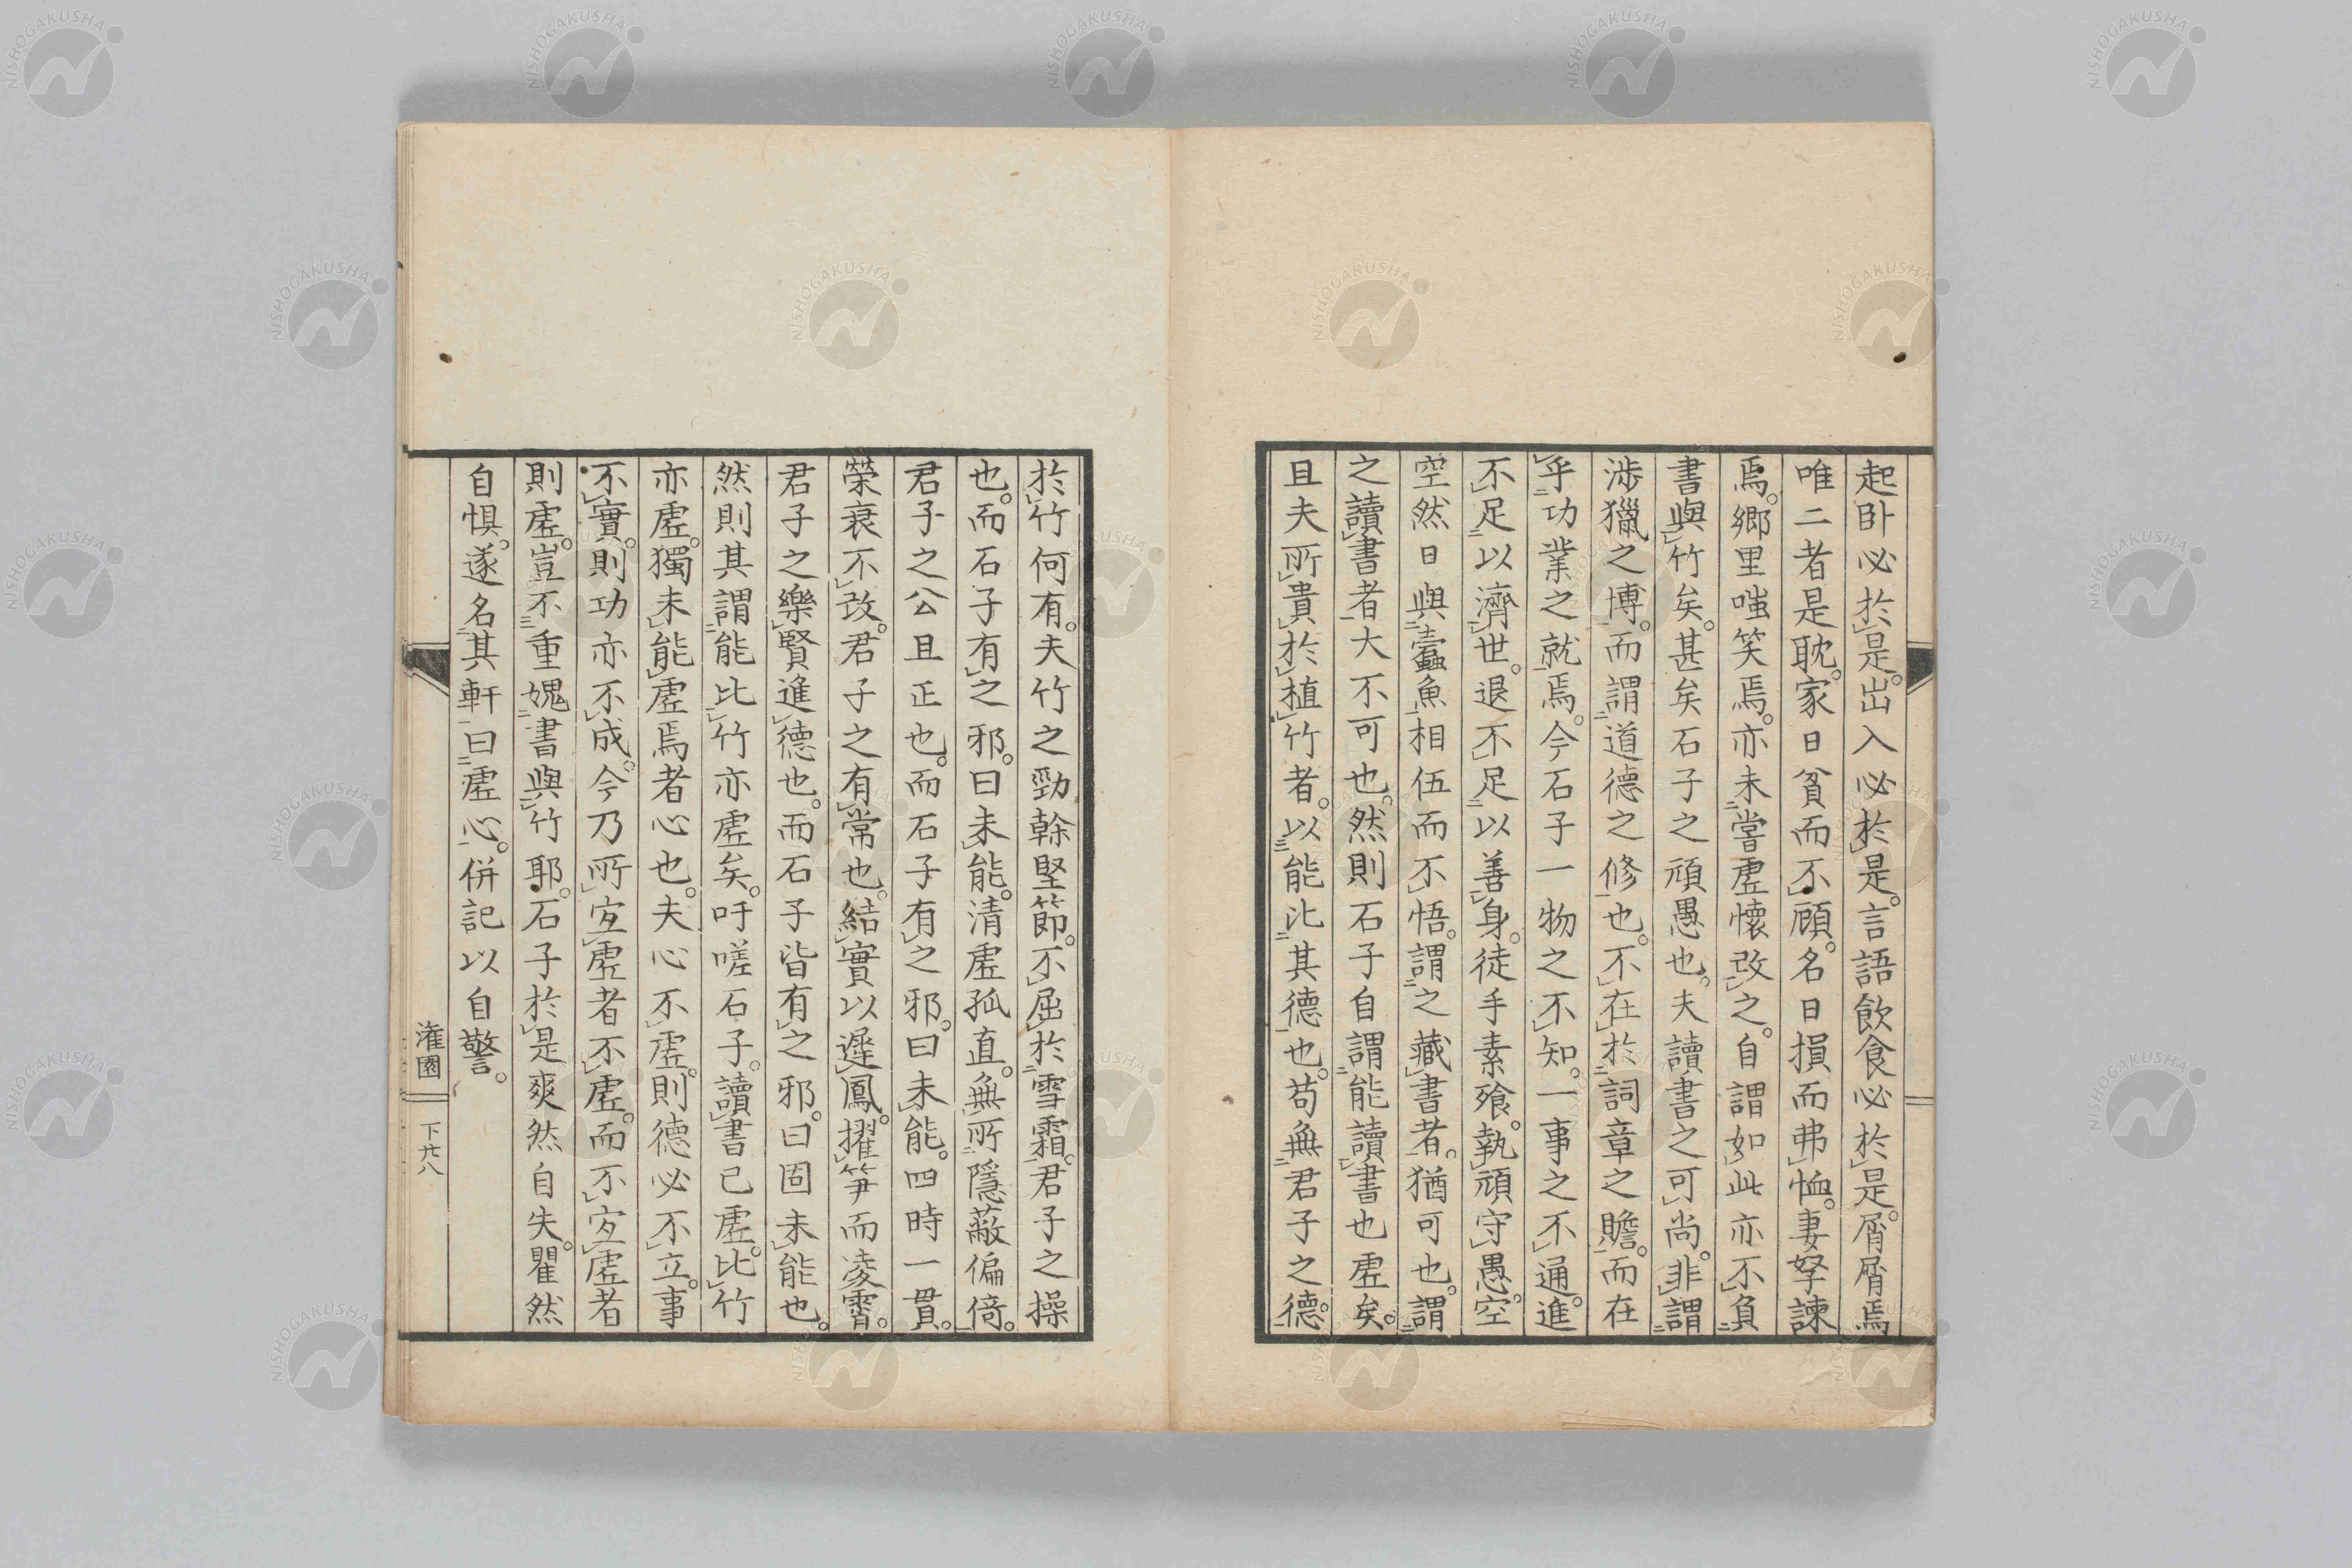 起臥必於是。出入必於是。言語飲食必於是。屑屑焉
唯二者是耽。家日貧而不顧。名日損而弗恤。妻孥諫
焉。鄉里嗤笑焉。亦未嘗虛懷改之。自謂如此亦不負
書與竹矣。甚矣石子之頑愚也。夫讀書之可尚。非謂
涉獵之博。而謂道德之修也。不在於詞章之贍。而在
乎功業之就焉。今石子一物之不知。一事之不通。進
不足以濟世。退不足以善身。徒手素飱。執頑守愚。空
空然日與蠹魚相伍而不悟。謂之藏書者。猶可也。謂
之讀書者大不可也。然則石子自謂能讀書也虛矣。
且夫所貴於植竹者。以能比其德也。苟無君子之德。
於竹何有。夫竹之勁幹堅節。不屈於雪霜。君子之操
也。而石子有之邪。曰未能。清虛孤直。無所隱蔽偏倚。
君子之公且正也。而石子有之邪。曰未能。四時一貫。
榮衰不改。君子之有常也。結實以遲鳳。擢笋而凌霄。
君子之樂賢進德也。而石子皆有之邪。曰固未能也。
然則其謂能比竹亦虛矣。吁嗟石子。讀書已虛。比竹
亦虛。獨未能虛焉者心也。夫心不虛。則德必不立。事
不實。則功亦不成。今乃所宜虛者不虛。而不宜虛者
則虛。豈不重媿書與竹耶。石子於是爽然自失。瞿然
自惧。遂名其軒曰虛心。併記以自警。
潅園
下廿八
NISHOGAKUSHA